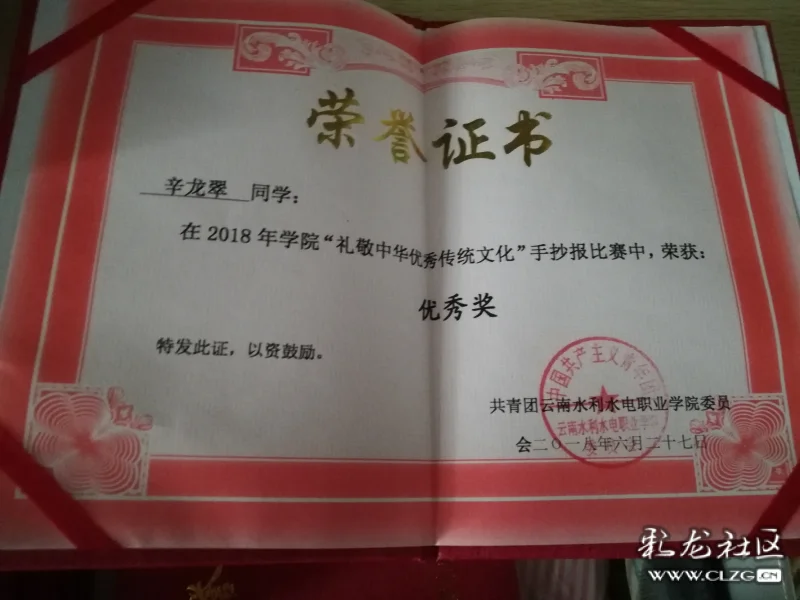 荣誉证书
辛龙翠 同学:
在 2018 年学院“礼敬中华优秀传统文化”手抄报比赛中,荣获:
优秀奖
特发此证,以资鼓励。
中国共产主义青年团
共青团云南水利水电职业学院委员
云南水利水电职业学院
会二〇一八年六月二十七日
彩龙社区
WWW.CLZG.CN